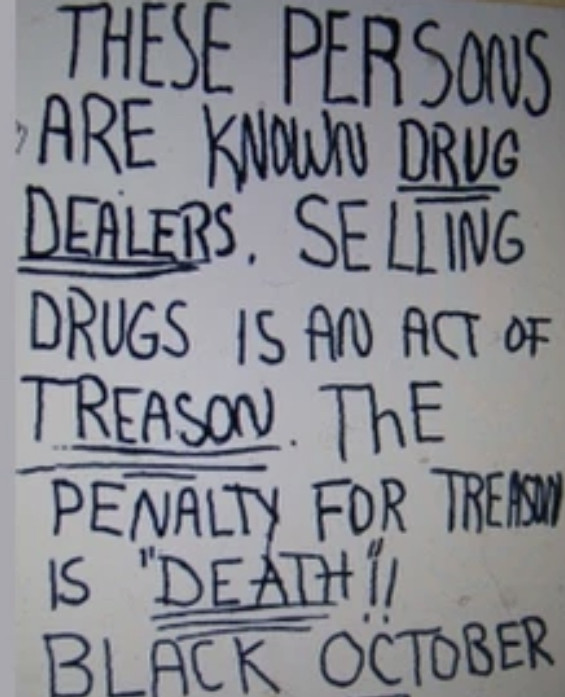 THESE PERSONS
ARE KNOWN DRUG
DEALERS. SELLING
DRUGS IS AN ACT OF
TREASON. ThE
PENALTY FOR TREASON
IS "DEATH"!!
BLACK OCTOBER